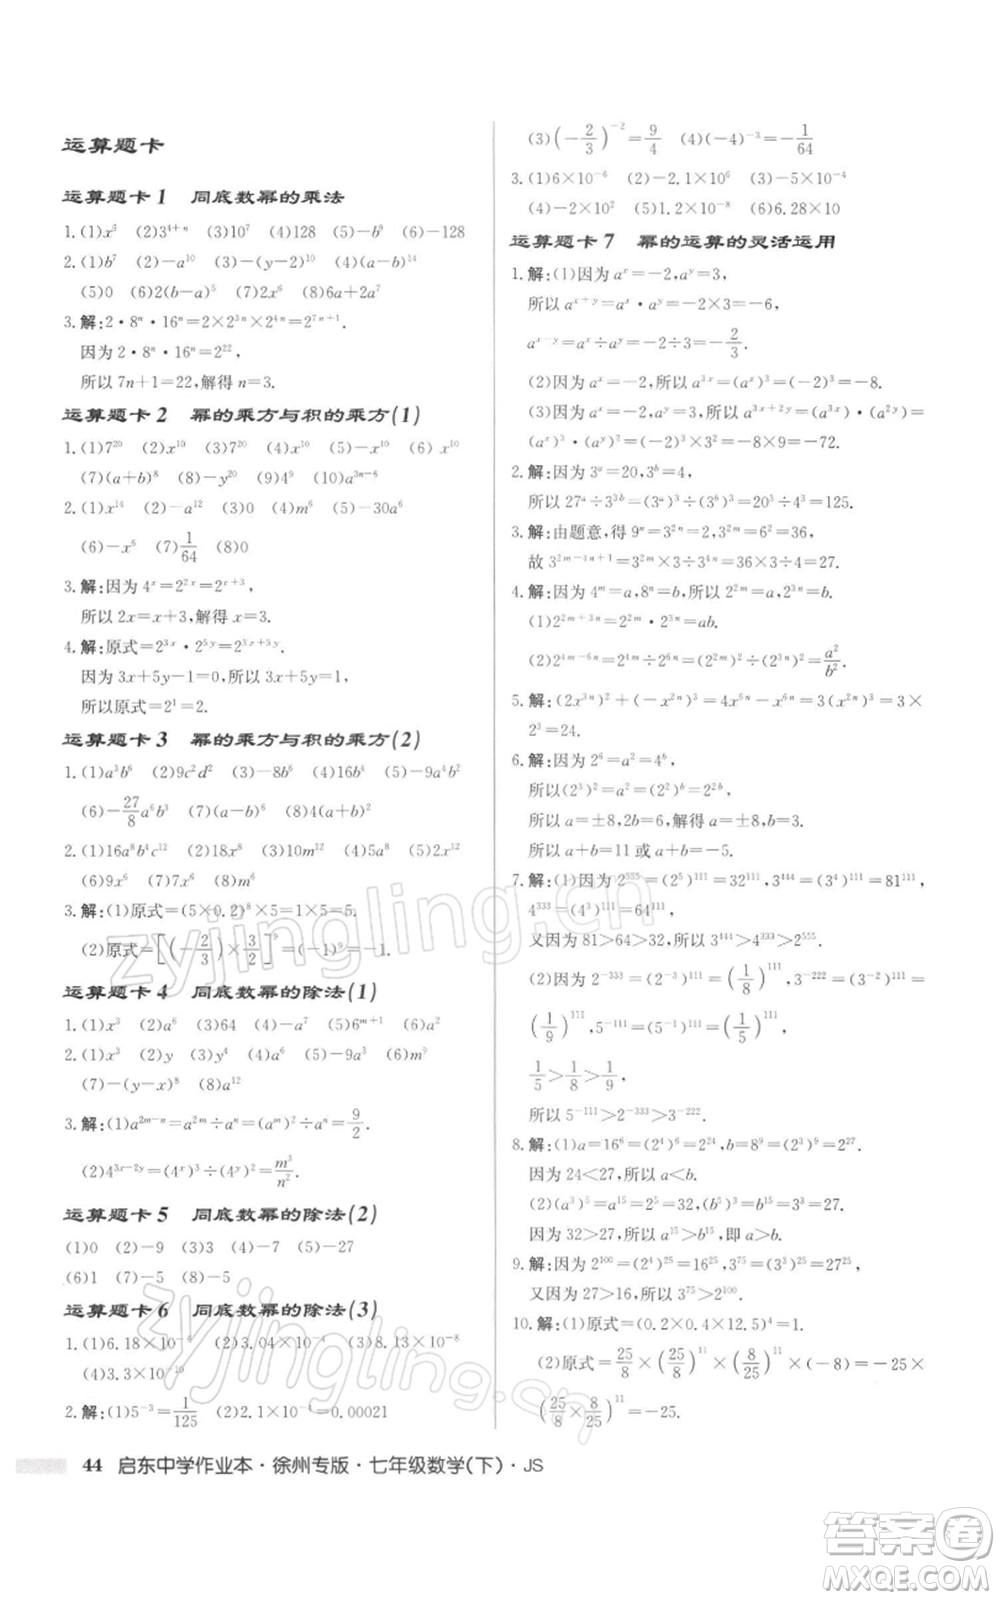 运算题卡
运算题卡 1 同底数幂的乘法
1.(1)x⁵ (2)3⁴⁺ⁿ (3)10⁷ (4)128 (5)-b⁹ (6)-128
2.(1)b⁷ (2)-a¹⁰ (3)-(y-2)⁸ (4)(a-b)¹⁴
(5)0 (6)2(b-a)⁵ (7)2x⁶ (8)x⁶+2a⁷
3.解:2·8ⁿ·16ⁿ=2×2³ⁿ×2⁴ⁿ=2⁷ⁿ⁺¹.
因为 2·8ⁿ·16ⁿ=2²²,
所以 7n+1=22,解得 n=3.
运算题卡 2 幂的乘方与积的乘方(1)
1.(1)7²⁰ (2)x¹⁰ (3)7²⁰ (4)x¹⁰ (5)-x¹⁰ (6)x¹⁰
(7)(a+b)⁸ (8)-x¹⁵ (9)4⁹ (10)a³ⁿ⁻⁶
2.(1)x¹⁴ (2)-a¹² (3)0 (4)m⁶ (5)-30a⁶
(6)-x⁶ (7)1/64 (8)0
3.解:因为 4ˣ=2²ˣ=2ˣ⁺³,
所以 2x=x+3,解得 x=3.
4.解:原式=2³ˣ·2⁵ʸ=2³ˣ⁺⁵ʸ.
因为 3x+5y-1=0,所以 3x+5y=1,
所以原式=2¹=2.
运算题卡 3 幂的乘方与积的乘方(2)
1.(1)a³b⁶ (2)9c²d² (3)-8b⁶ (4)16b⁴ (5)-9a⁴b²
(6)-27/8a⁶b³ (7)(a-b)⁶ (8)4(a+b)⁶
2.(1)16a⁸b⁴c¹² (2)9x⁶ (3)0 (4)a⁶ (5)2a⁶b⁶
(6)9x⁶ (7)a¹² (8)-m⁶
3.解:(1)原式=(5×0.2)⁸×5=1×5=5.
(2)原式=[(-2/3)×3/2]⁹=(-1)⁹=-1.
运算题卡 4 同底数幂的除法(1)
1.(1)x³ (2)a⁶ (3)64 (4)x³ (5)6ᵐ⁺¹ (6)a²
2.(1)x³ (2)y (3)y⁴ (4)x (5)-a³b³ (6)m⁹
(7)-(y-x)⁸ (8)a¹²
3.解:(1)a²ᵐ⁻ⁿ=a²ᵐ÷aⁿ=(aᵐ)²÷aⁿ=9/2.
(2)4³ˣ⁻²ʸ=(4ˣ)³÷(4ʸ)²=m³/n².
运算题卡 5 同底数幂的除法(2)
(1)0 (2)-9 (3)3 (4)-7 (5)-27
(6)1 (7)-5 (8)-5
运算题卡 6 同底数幂的除法(3)
1.(1)6.18×10 (2)3.04×10 (3)8.13×10⁻⁸
(4)3.3×10⁻¹⁰
2.解:(1)5⁻³=1/125 (2)2.1×10⁻⁴=0.00021
(3)(-2/3)⁻²=9/4 (4)(-4)⁻³=-1/64
3.(1)6×10⁻⁶ (2)-2.1×10⁶ (3)-5×10⁻⁴
(4)-2×10² (5)1.2×10⁻⁸ (6)6.28×10
运算题卡 7 幂的运算的灵活运用
1.解:(1)因为 aˣ=-2,aʸ=3,
所以 aˣ⁺ʸ=aˣ·aʸ=-2×3=-6,
aˣ⁻ʸ=aˣ÷aʸ=(-2)÷3=-2/3.
(2)因为 aˣ=-2,所以 a³ˣ=(aˣ)³=(-2)³=-8.
(3)因为 aˣ=-2,aʸ=3,所以 a³ˣ⁺²ʸ=(a³ˣ)·(a²ʸ)=
(aˣ)³·(aʸ)²=(-2)³×3²=-8×9=-72.
2.解:因为 3ᵃ=20,3ᵇ=4,
所以 27ᵃ÷3³ᵇ=(3ᵃ)³÷(3ᵇ)³=20³÷4³=125.
3.解:由题意,得 9ⁿ=3²ⁿ=2,3²ᵐ=6²=36,
故 3²ᵐ⁻⁴ⁿ⁺¹=3²ᵐ×3÷3⁴ⁿ=36×3÷4=27.
4.解:因为 4ᵐ=a,8ⁿ=b,所以 2²ᵐ=a,2³ⁿ=b.
(1)2²ᵐ⁺³ⁿ=2²ᵐ·2³ⁿ=ab.
(2)2⁴ᵐ⁻⁶ⁿ=2⁴ᵐ÷2⁶ⁿ=(2²ᵐ)²÷(2³ⁿ)²=a²/b².
5.解:(2x³ⁿ)²+(-x²ⁿ)³=4x⁶ⁿ-x⁶ⁿ=3(x²ⁿ)³=3×
2³=24.
6.解:因为 2⁶=a²=4ᵇ,
所以(2³)²=a²=(2²)ᵇ=2²ᵇ,
所以 a=±8,2b=6,解得 a=±8,b=3.
所以 a+b=11 或 a+b=-5.
7.解:(1)因为 2⁵⁵⁵=(2⁵)¹¹¹=32¹¹¹,3⁴⁴⁴=(3⁴)¹¹¹=81¹¹¹,
4³³³=(4³)¹¹¹=64¹¹¹,
又因为 81>64>32,所以 3⁴⁴⁴>4³³³>2⁵⁵⁵.
(2)因为 2⁻³³³=(2⁻³)¹¹¹=(1/8)¹¹¹,3⁻²²²=(3⁻²)¹¹¹=
(1/9)¹¹¹,5⁻¹¹¹=(5⁻¹)¹¹¹=(1/5)¹¹¹,
1/5>1/8>1/9,
所以 5⁻¹¹¹>2⁻³³³>3⁻²²².
8.解:(1)a=16⁶=(2⁴)⁶=2²⁴,b=8⁹=(2³)⁹=2²⁷.
因为 24<27,所以 a<b.
(2)(a³)⁵=a¹⁵=2⁵=32,(b⁵)³=b¹⁵=3³=27.
因为 32>27,所以 a¹⁵>b¹⁵,即 a>b.
9.解:因为 2¹⁰⁰=(2⁴)²⁵=16²⁵,3⁷⁵=(3³)²⁵=27²⁵,
又因为 27>16,所以 3⁷⁵>2¹⁰⁰.
10.解:(1)原式=(0.2×0.4×12.5)⁴=1.
(2)原式=25/8×(25/8)¹¹×(8/25)¹¹×(-8)=-25×
(25/8×8/25)¹¹=-25.
44 启东中学作业本·徐州专版·七年级数学(下)·JS
zyjingling.cn
zyjingling.cn
答案卷
MXQE.COM